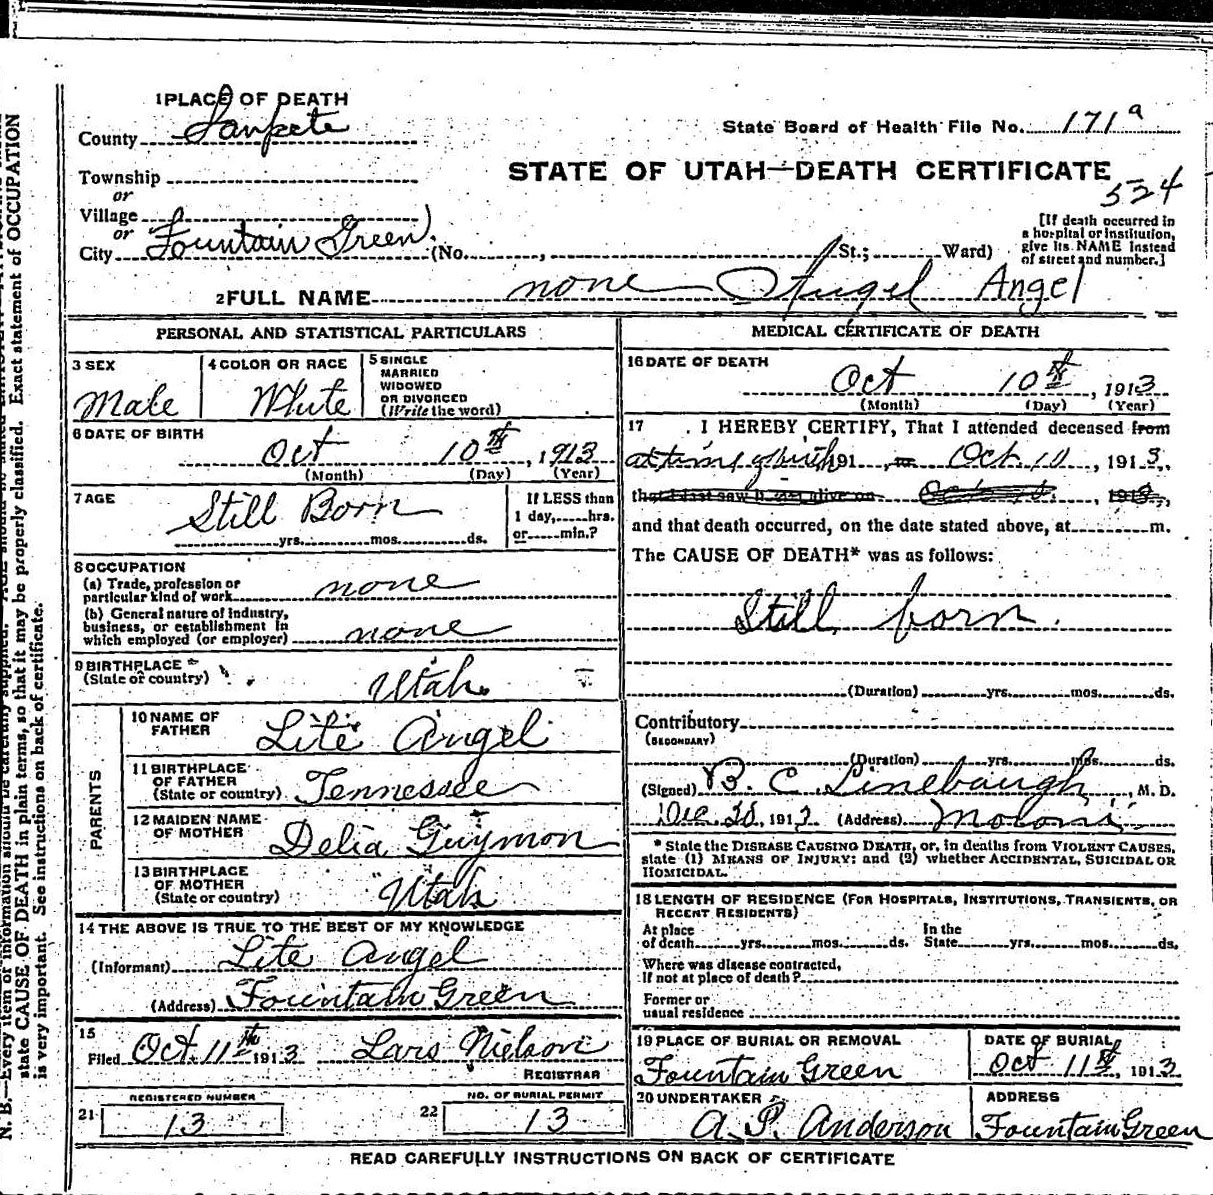 1 PLACE OF DEATH
County Sanpete
State Board of Health File No. 171a
Township
STATE OF UTAH—DEATH CERTIFICATE
534
or
Village
or
City Fountain Green (No. , St.; Ward)
[If death occurred in
a hospital or institution,
give its NAME instead
of street and number.]
2 FULL NAME none Angel Angel
PERSONAL AND STATISTICAL PARTICULARS
3 SEX
Male
4 COLOR OR RACE
White
5 SINGLE
MARRIED
WIDOWED
OR DIVORCED
(Write the word)
6 DATE OF BIRTH
Oct 10th, 1913
(Month) (Day) (Year)
7 AGE
Still Born
yrs. mos. ds.
If LESS than
1 day, hrs.
or min.?
8 OCCUPATION
(a) Trade, profession or
particular kind of work none
(b) General nature of industry,
business, or establishment in
which employed (or employer) none
9 BIRTHPLACE
(State or country)
Utah
PARENTS
10 NAME OF
FATHER
Lite Angel
11 BIRTHPLACE
OF FATHER
(State or country) Tennessee
12 MAIDEN NAME
OF MOTHER
Delia Guymon
13 BIRTHPLACE
OF MOTHER
(State or country)
Utah
14 THE ABOVE IS TRUE TO THE BEST OF MY KNOWLEDGE
(Informant) Lite Angel
(Address) Fountain Green
15
Filed Oct. 11th 1913 Lars Nielson
REGISTRAR
REGISTERED NUMBER
21 13
NO. OF BURIAL PERMIT
22 13
MEDICAL CERTIFICATE OF DEATH
16 DATE OF DEATH
Oct 10th, 1913
(Month) (Day) (Year)
17 I HEREBY CERTIFY, That I attended deceased from
at time of birth 191 , to Oct. 10, 1913,
that I last saw h alive on , 1913,
and that death occurred, on the date stated above, at m.
The CAUSE OF DEATH* was as follows:
Still born.
(Duration) yrs. mos. ds.
Contributory
(SECONDARY)
(Duration) yrs. mos. ds.
(Signed) B. C. Linebaugh, M. D.
Dec. 1913 (Address) Moroni
* State the DISEASE CAUSING DEATH, or, in deaths from VIOLENT CAUSES,
state (1) MEANS OF INJURY; and (2) whether ACCIDENTAL, SUICIDAL OR
HOMICIDAL.
18 LENGTH OF RESIDENCE (FOR HOSPITALS, INSTITUTIONS, TRANSIENTS, OR
RECENT RESIDENTS)
At place
of death yrs. mos. ds.
In the
State yrs. mos. ds.
Where was disease contracted,
if not at place of death?
Former or
usual residence
19 PLACE OF BURIAL OR REMOVAL
Fountain Green
DATE OF BURIAL
Oct 11th, 1913
20 UNDERTAKER
A. P. Anderson
ADDRESS
Fountain Green
READ CAREFULLY INSTRUCTIONS ON BACK OF CERTIFICATE
state CAUSE OF DEATH in plain terms, so that it may be properly classified. Exact statement of OCCUPATION
is very important. See instructions on back of certificate.